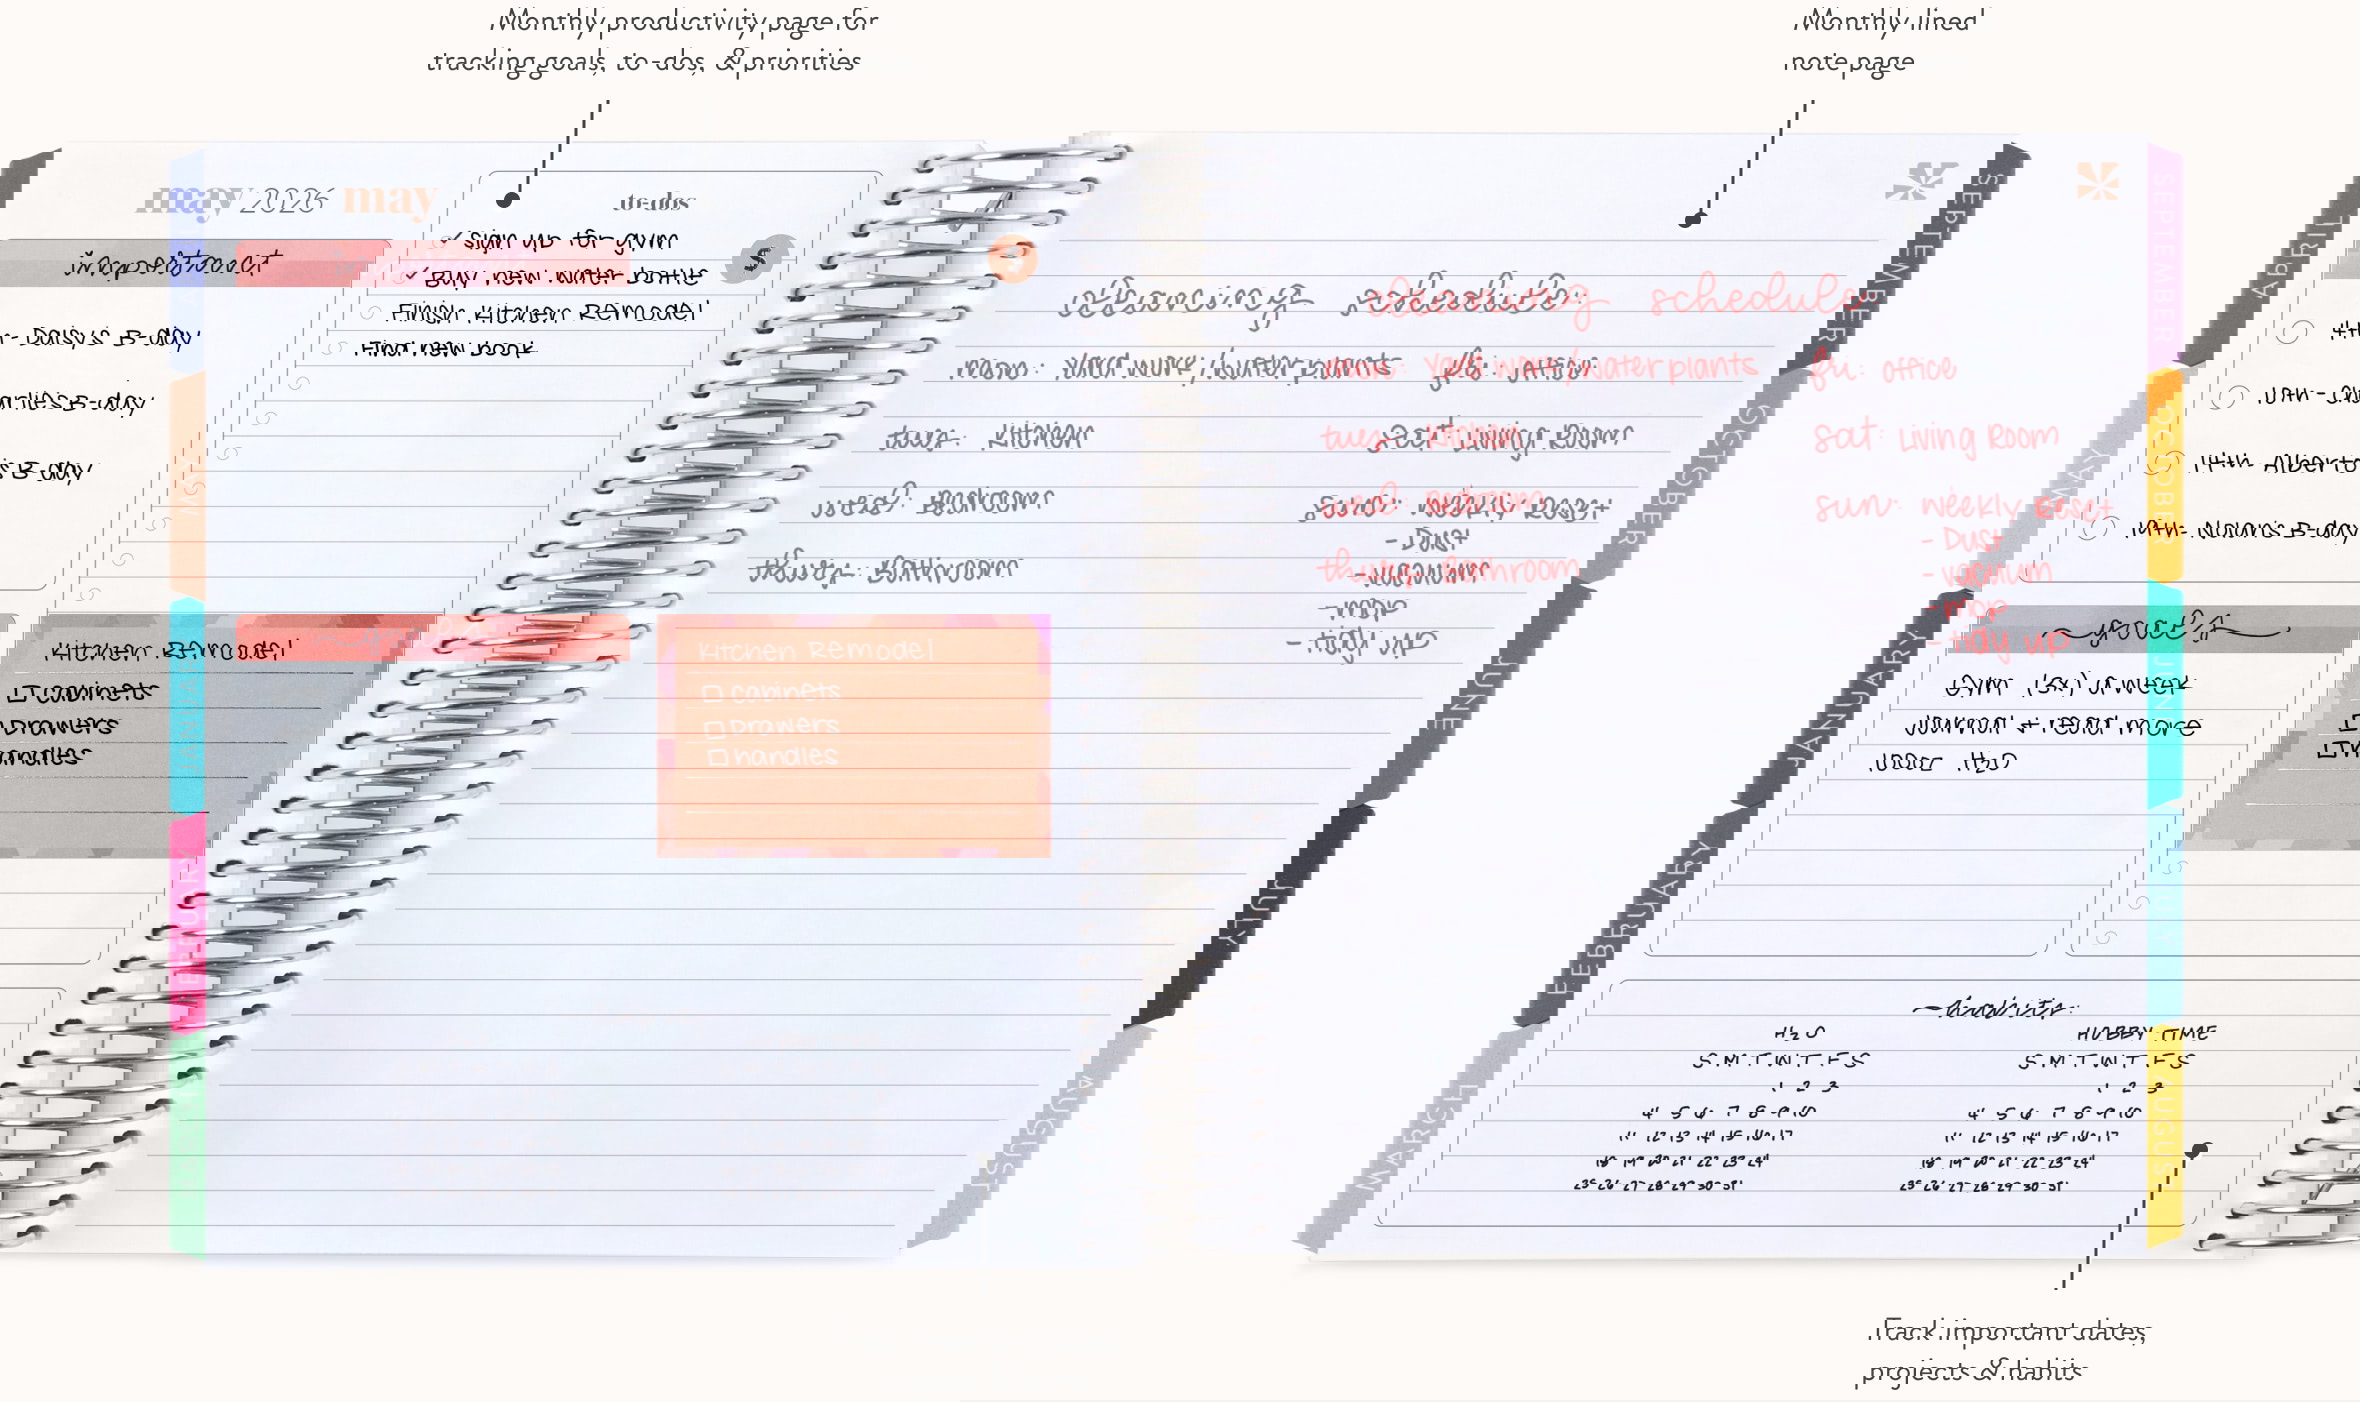 Monthly productivity page for
tracking goals, to-dos, & priorities
Monthly lined
note page
may 2026 may
to-dos
sign up for gym
Buy new water bottle
Finish Kitchen Remodel
Find new book
important
4th - Daisy's B-day
10th -
arlie's B-day
14th- Alberto
's B-day
Nolan's B-day
Kitchen Remodel
cabinets
Drawers
handles
Kitchen Remodel
cabinets
Drawers
handles
$
cleaning schedule: schedule
mon: Yard work / water plants
fri: office
tues: Kitchen
sat: Living Room
wed: Bedroom
sun: weekly Reset
- Dust
- vacuum
- mop
- tidy up
thurs: Bathroom
water plants
fri: office
sat: Living Room
sun: weekly Reset
- Dust
- vacuum
- mop
- tidy up
goals
Gym (3x) a week
Journal + read more
100oz H2O
habits:
H2O
S M T W T F S
1 2 3
4 5 6 7 8 9 10
11 12 13 14 15 16 17
18 19 20 21 22 23 24
25 26 27 28 29 30 31
HOBBY TIME
S M T W T F S
1 2 3
4 5 6 7 8 9 10
11 12 13 14 15 16 17
18 19 20 21 22 23 24
25 26 27 28 29 30 31
JANUARY
FEBRUARY
SEPTEMBER
OCTOBER
APRIL
MAY
JUNE
JULY
AUGUST
JANUARY
FEBRUARY
MARCH
SEPTEMBER
OCTOBER
JUNE
JULY
AUGUST
Track important dates,
projects & habits